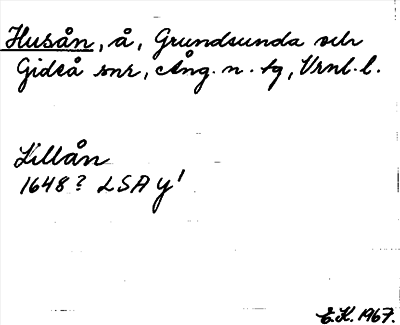 Husån, å, Grundsunda och
Gideå snr, Ång. n. tg, Vrnl. l.
Lillån
1648? LSA y'
E.K. 1967.